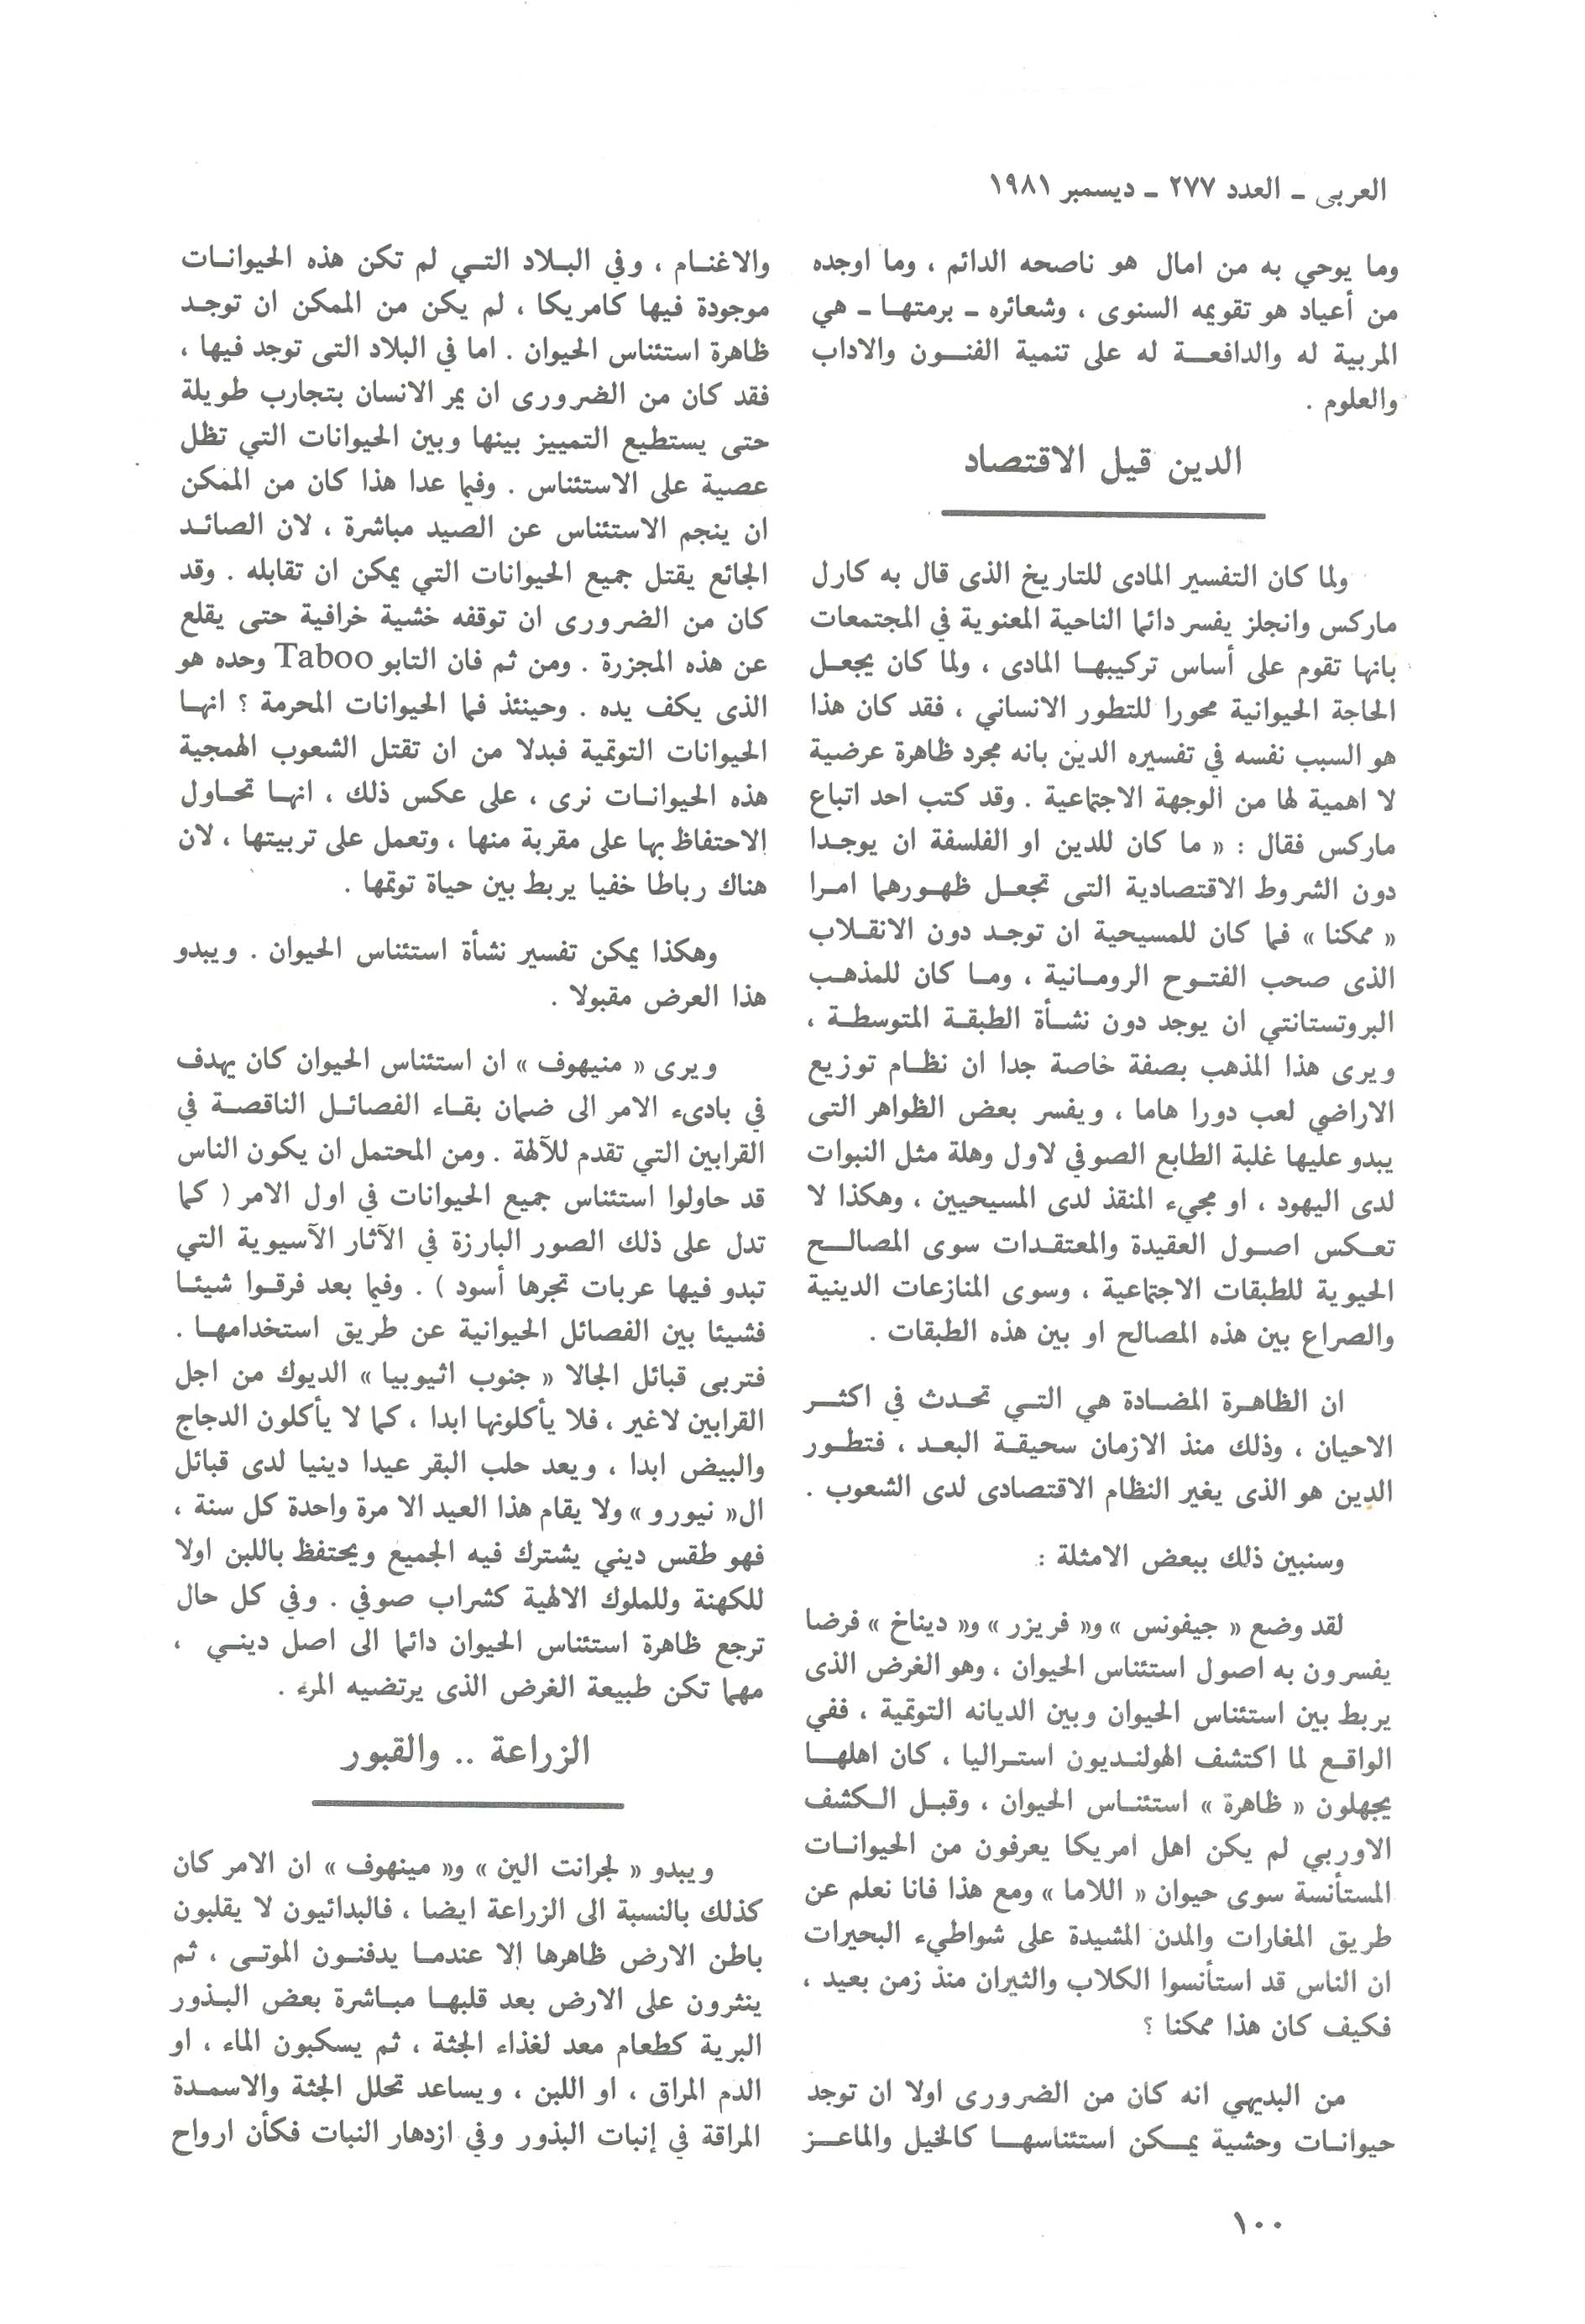 العربى ـ العدد ٢٧٧ ـ ديسمبر ١٩٨١
وما يوحي به من امال هو ناصحه الدائم ، وما اوجده
من أعياد هو تقويمه السنوى ، وشعائره ـ برمتها ـ هي
المربية له والدافعة له على تنمية الفنون والاداب
والعلوم .
الدين قيل الاقتصاد
ولما كان التفسير المادى للتاريخ الذى قال به كارل
ماركس وانجلز يفسر دائما الناحية المعنوية في المجتمعات
بانها تقوم على أساس تركيبها المادى ، ولما كان يجعل
الحاجة الحيوانية محورا للتطور الانساني ، فقد كان هذا
هو السبب نفسه في تفسيره الدين بانه مجرد ظاهرة عرضية
لا اهمية لها من الوجهة الاجتماعية . وقد كتب احد اتباع
ماركس فقال : « ما كان للدين او الفلسفة ان يوجدا
دون الشروط الاقتصادية التى تجعل ظهورهما امرا
« ممكنا » فما كان للمسيحية ان توجد دون الانقلاب
الذى صحب الفتوح الرومانية ، وما كان للمذهب
البروتستانتي ان يوجد دون نشأة الطبقة المتوسطة ،
ويرى هذا المذهب بصفة خاصة جدا ان نظام توزيع
الاراضي لعب دورا هاما ، ويفسر بعض الظواهر التى
يبدو عليها غلبة الطابع الصوفي لاول وهلة مثل النبوات
لدى اليهود ، او مجيء المنقذ لدى المسيحيين ، وهكذا لا
تعكس اصول العقيدة والمعتقدات سوى المصالح
الحيوية للطبقات الاجتماعية ، وسوى المنازعات الدينية
والصراع بين هذه المصالح او بين هذه الطبقات .
ان الظاهرة المضادة هي التي تحدث في اكثر
الاحيان ، وذلك منذ الازمان سحيقة البعد ، فتطور
الدين هو الذى يغير النظام الاقتصادى لدى الشعوب .
وسنبين ذلك ببعض الامثلة :
لقد وضع « جيفونس » و« فريزر » و« ديناخ » فرضا
يفسرون به اصول استئناس الحيوان ، وهو الغرض الذى
يربط بين استئناس الحيوان وبين الديانه التوتمية ، ففي
الواقع لما اكتشف الهولنديون استراليا ، كان اهلها
يجهلون « ظاهرة » استئناس الحيوان ، وقبل الكشف
الاوربي لم يكن اهل امريكا يعرفون من الحيوانات
المستأنسة سوى حيوان « اللاما » ومع هذا فانا نعلم عن
طريق المغارات والمدن المشيدة على شواطيء البحيرات
ان الناس قد استأنسوا الكلاب والثيران منذ زمن بعيد ،
فكيف كان هذا ممكنا ؟
من البديهي انه كان من الضرورى اولا ان توجد
حيوانات وحشية يمكن استئناسها كالخيل والماعز
والاغنام ، وفي البلاد التي لم تكن هذه الحيوانات
موجودة فيها كامريكا ، لم يكن من الممكن ان توجد
ظاهرة استئناس الحيوان . اما في البلاد التى توجد فيها ،
فقد كان من الضرورى ان يمر الانسان بتجارب طويلة
حتى يستطيع التمييز بينها وبين الحيوانات التي تظل
عصية على الاستئناس . وفيما عدا هذا كان من الممكن
ان ينجم الاستئناس عن الصيد مباشرة ، لان الصائد
الجائع يقتل جميع الحيوانات التي يمكن ان تقابله . وقد
كان من الضرورى ان توقفه خشية خرافية حتى يقلع
عن هذه المجزرة . ومن ثم فان التابو Taboo وحده هو
الذى يكف يده . وحينئذ فما الحيوانات المحرمة ؟ انها
الحيوانات التوتمية فبدلا من ان تقتل الشعوب الهمجية
هذه الحيوانات نرى ، على عكس ذلك ، انها تحاول
الاحتفاظ بها على مقربة منها ، وتعمل على تربيتها ، لان
هناك رباطا خفيا يربط بين حياة توتمها .
وهكذا يمكن تفسير نشأة استئناس الحيوان . ويبدو
هذا العرض مقبولا .
ويرى « منيهوف » ان استئناس الحيوان كان يهدف
في بادىء الامر الى ضمان بقاء الفصائل الناقصة في
القرابين التي تقدم للآلهة . ومن المحتمل ان يكون الناس
قد حاولوا استئناس جميع الحيوانات في اول الامر ( كما
تدل على ذلك الصور البارزة في الآثار الآسيوية التي
تبدو فيها عربات تجرها أسود ) . وفيما بعد فرقوا شيئا
فشيئا بين الفصائل الحيوانية عن طريق استخدامها .
فتربى قبائل الجالا « جنوب اثيوبيا » الديوك من اجل
القرابين لاغير ، فلا يأكلونها ابدا ، كما لا يأكلون الدجاج
والبيض ابدا ، ويعد حلب البقر عيدا دينيا لدى قبائل
ال« نيورو » ولا يقام هذا العيد الا مرة واحدة كل سنة ،
فهو طقس ديني يشترك فيه الجميع ويحتفظ باللبن اولا
للكهنة وللملوك الالهية كشراب صوفي . وفي كل حال
ترجع ظاهرة استئناس الحيوان دائما الى اصل ديني ،
مهما تكن طبيعة الغرض الذى يرتضيه المرء .
الزراعة .. والقبور
ويبدو « لجرانت الين » و« مينهوف » ان الامر كان
كذلك بالنسبة الى الزراعة ايضا ، فالبدائيون لا يقلبون
باطن الارض ظاهرها إلا عندما يدفنون الموتى ، ثم
ينثرون على الارض بعد قلبها مباشرة بعض البذور
البرية كطعام معد لغذاء الجثة ، ثم يسكبون الماء ، او
الدم المراق ، او اللبن ، ويساعد تحلل الجثة والاسمدة
المراقة في إنبات البذور وفي ازدهار النبات فكأن ارواح
١٠٠